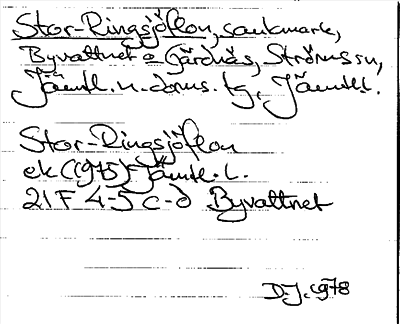 Stor-Ringsjöflon, sankmark,
Byvattnet o Gärdnäs, Ströms sn,
Jämtl. n. doms. tg, Jämtl.
Stor-Ringsjöflon
ek (1975) Jämtl. l.
21F 4-5 c-d Byvattnet
D.J. 1978